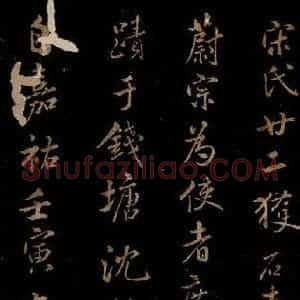 宋氏廿二獲石
蔚宗為使者
蹟于錢塘沈
自嘉祐壬寅
Shufaziliao.com